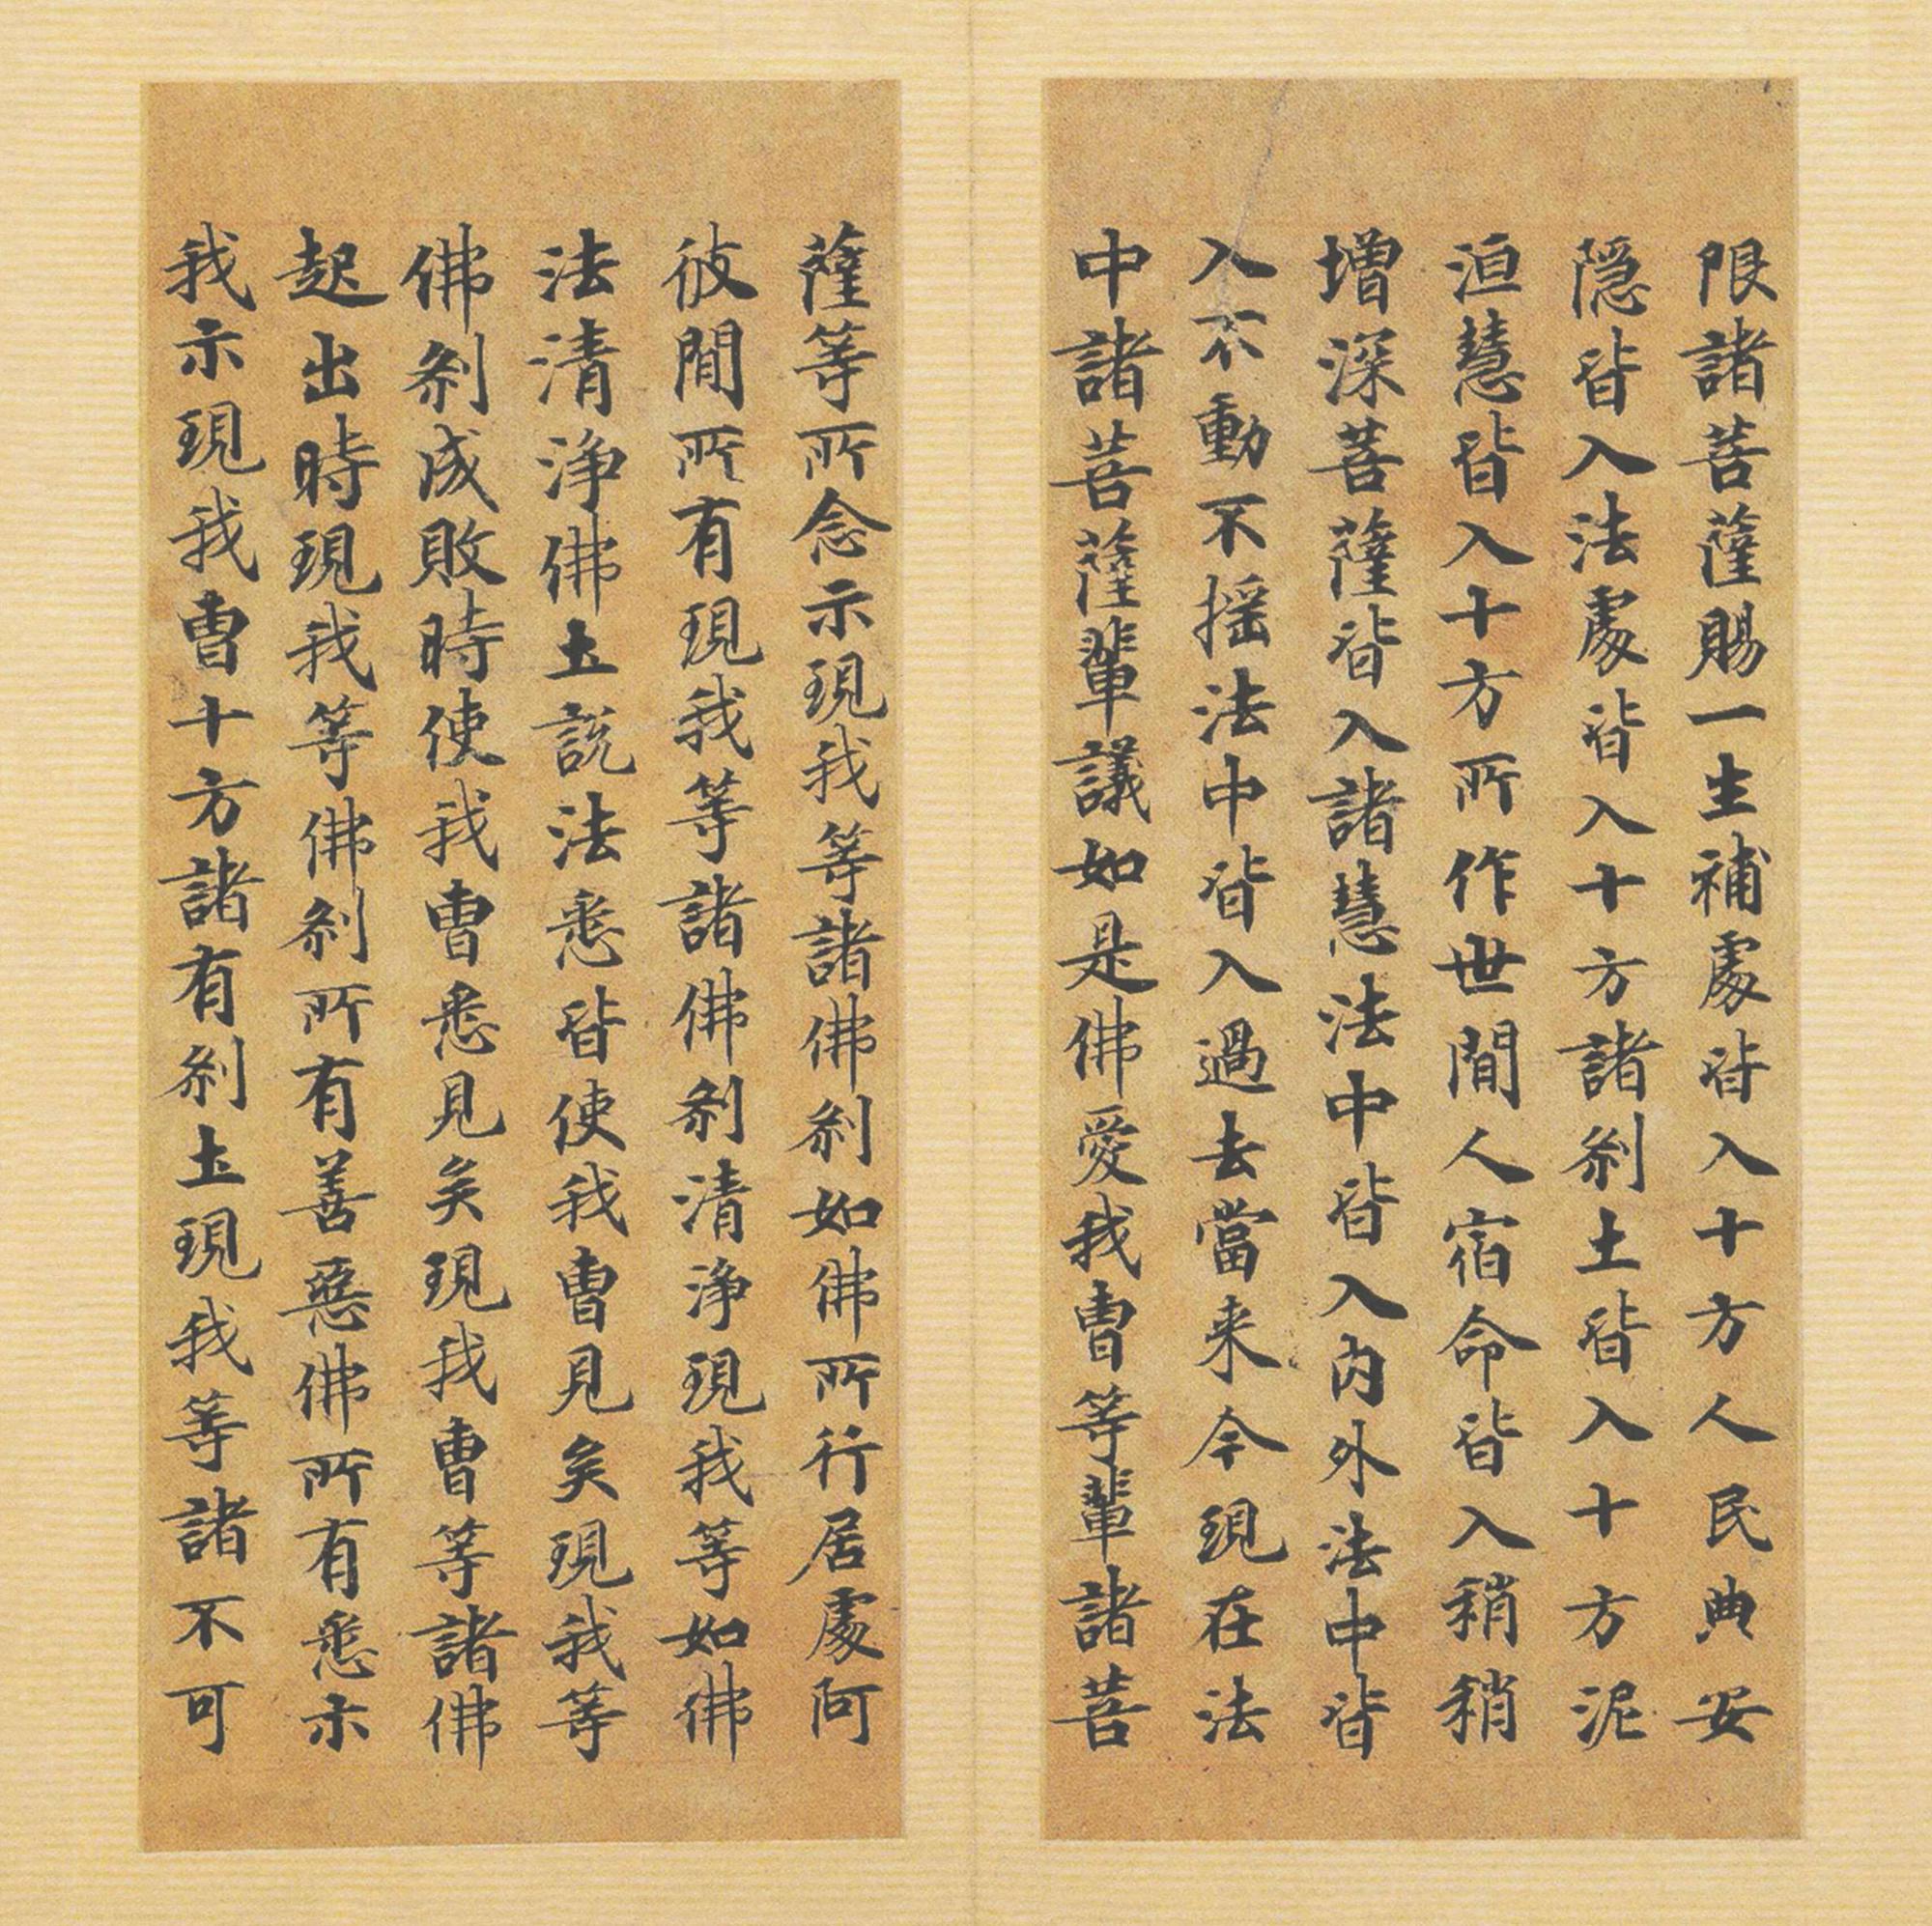 限諸菩薩賜一生補處皆入十方人民典安
隱皆入法處皆入十方諸剎土皆入十方泥
洹慧皆入十方所作世間人宿命皆入稍稍
增深菩薩皆入諸慧法中皆入內外法中皆
入不動不摇法中皆入過去當来今現在法
中諸菩薩輩議如是佛愛我曹等輩諸菩
薩等所念示現我等諸佛剎如佛所行居處阿
彼間所有現我等諸佛剎清淨現我等如佛
法清淨佛土説法悉皆使我曹見矣現我等
佛剎成敗時使我曹悉見矣現我曹等諸佛
起出時現我等佛剎所有善惡佛所有悉示
我示現我曹十方諸有剎土現我等諸不可